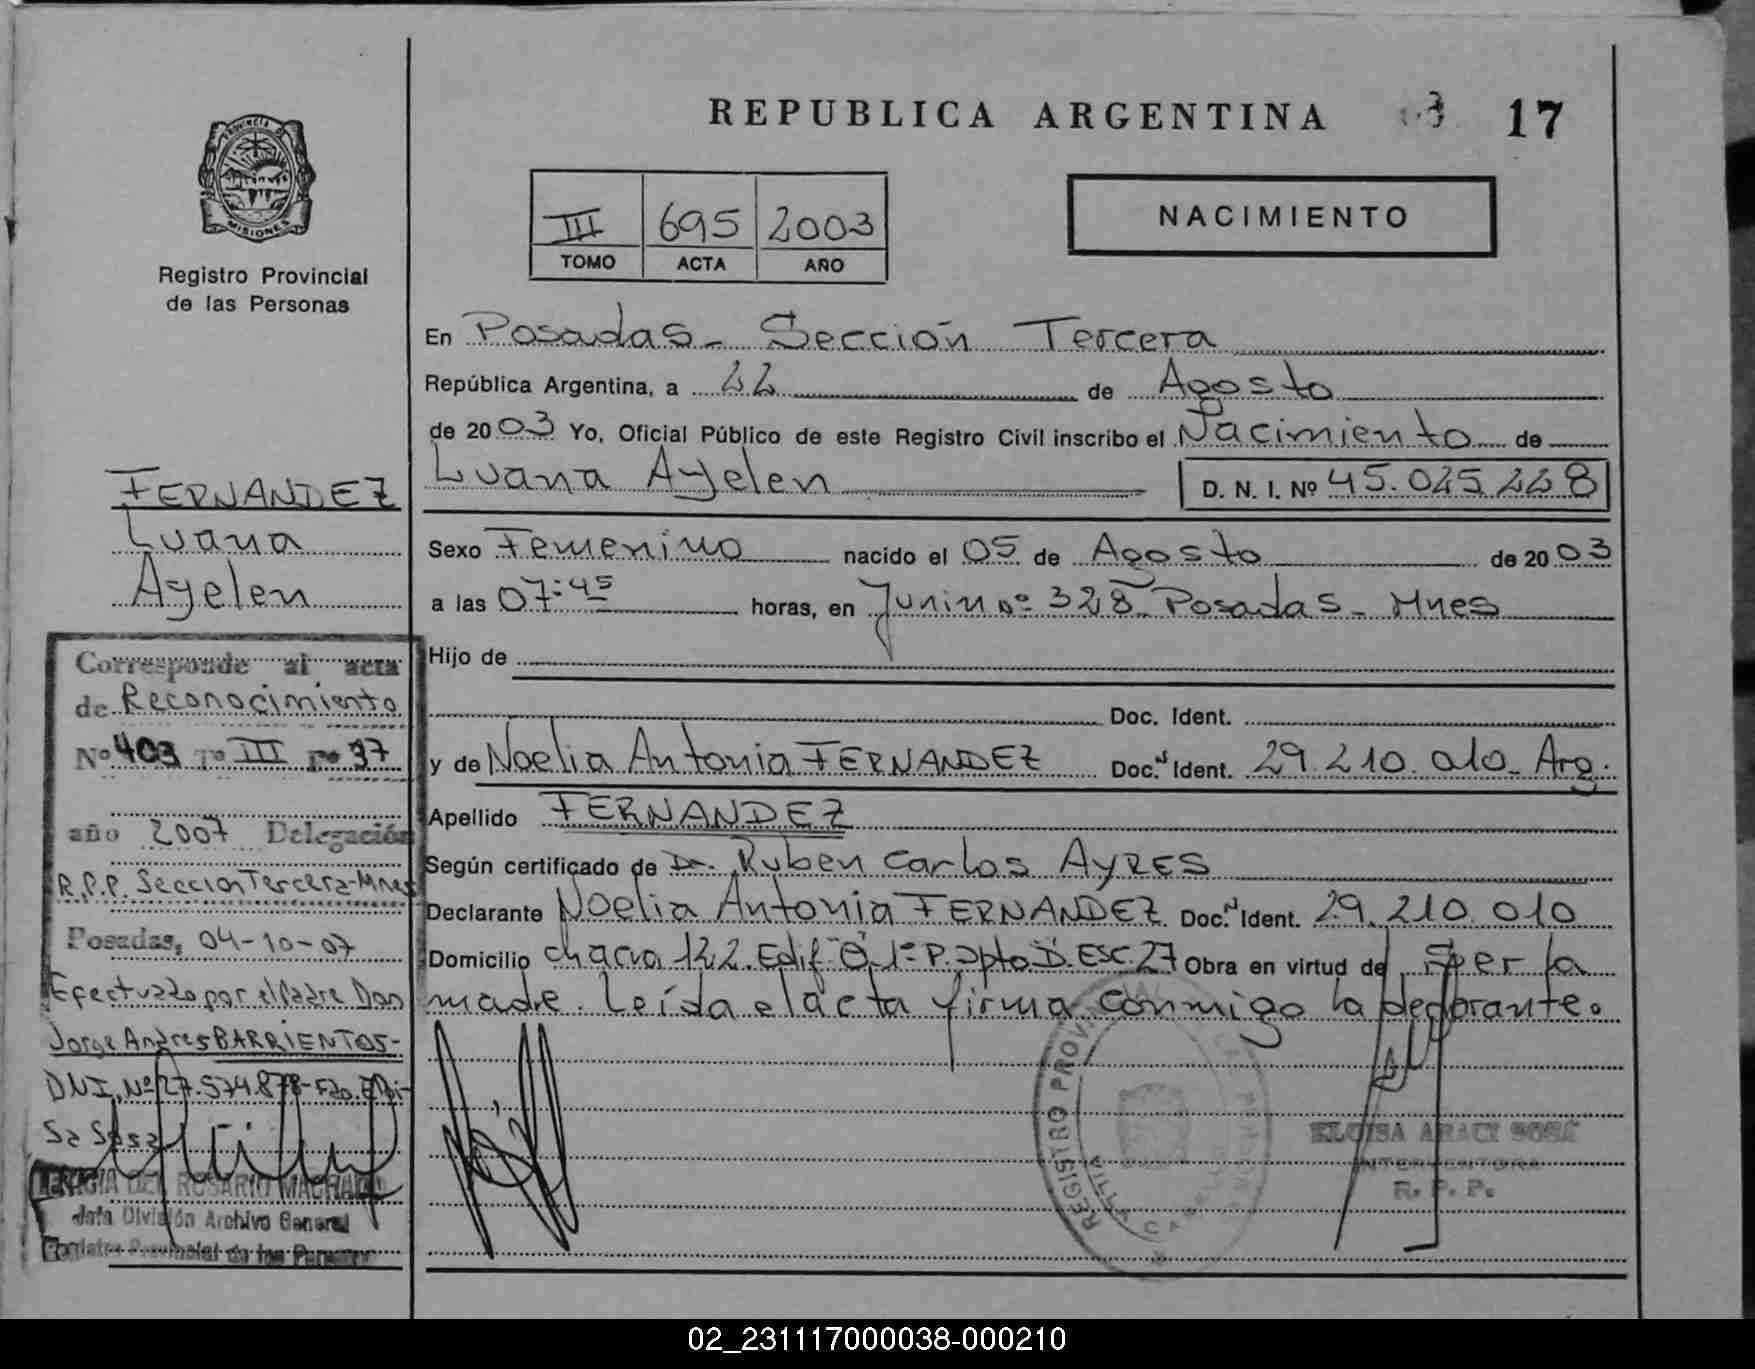 REPUBLICA ARGENTINA 17
PROVINCIA DE
MISIONES
Registro Provincial
de las Personas
III 695 2003
TOMO ACTA AÑO
NACIMIENTO
En Posadas - Sección Tercera
República Argentina, a 22 de Agosto
de 2003 Yo, Oficial Público de este Registro Civil inscribo el Nacimiento de
Luana Ayelen D. N. I. Nº 45.025.228
Sexo Femenino nacido el 05 de Agosto de 2003
a las 07:45 horas, en Junin Nº 328 Posadas - Mnes
Hijo de
Doc. Ident.
y de Noelia Antonia FERNANDEZ Doc. Ident. 29.210.010 - Arg.
Apellido FERNANDEZ
Según certificado de Dr. Ruben Carlos AYRES
Declarante Noelia Antonia FERNANDEZ Doc. Ident. 29.210.010
Domicilio chacra 122. Edif. O. 1º P. Dpto D. ESC. 27 Obra en virtud de Ser la
madre. Leída el acta firma conmigo la declarante.
FERNANDEZ
Luana
Ayelen
Corresponde al acta
de Reconocimiento
Nº 403 Tº III Fº 37
año 2007 Delegación
R.P.P. Seccion Tercera - Mnes
Posadas, 04-10-07
Efectuado por el Padre Don
Jorge Andres BARRIENTOS -
DNI. Nº 27.574.878 -
Sosa
DEL ROSARIO MACHADO
Jefa División Archivo General
Registro Provincial de las Personas
REGISTRO PROVINCIAL
ELOISA ARACI SOSA
INTERVENTORA
R. P. P.
02_231117000038-000210